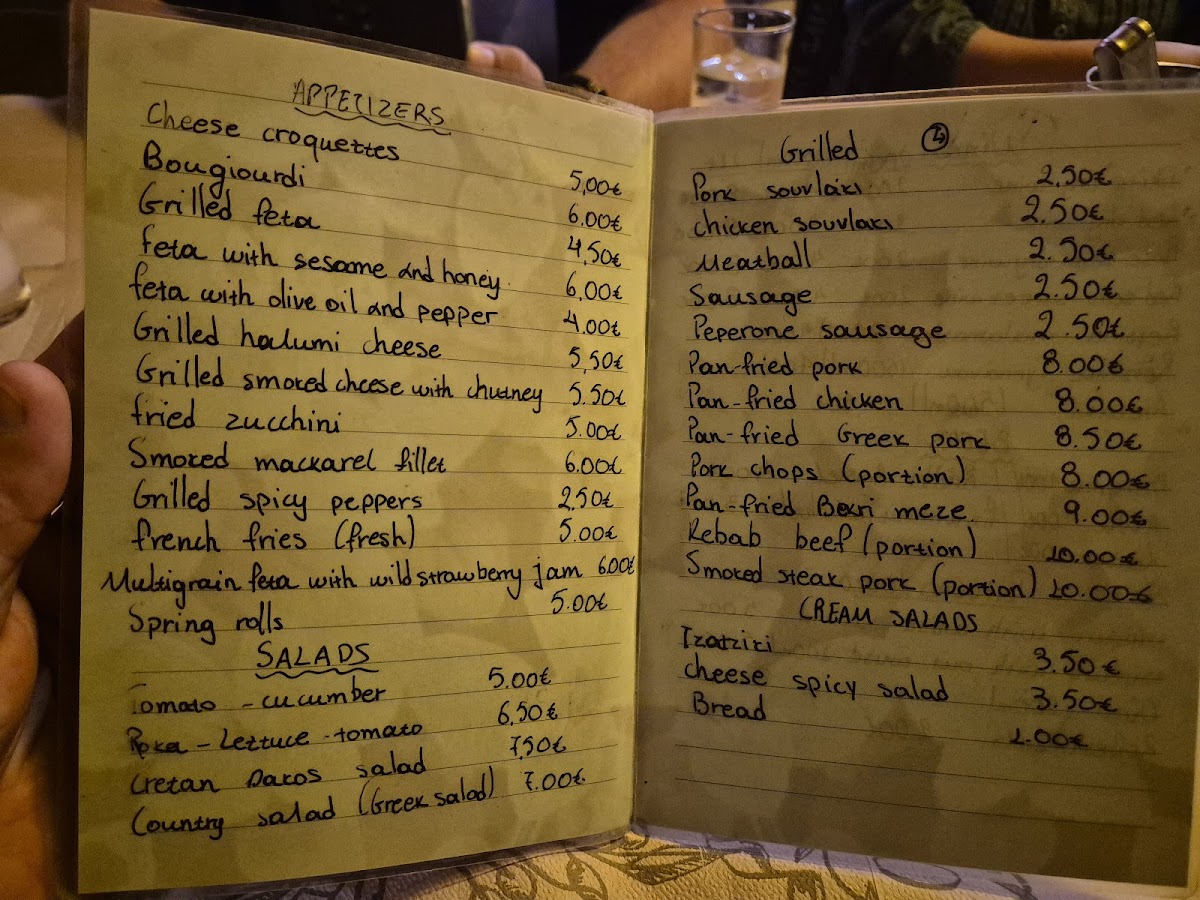 APPETIZERS
Cheese croquettes 5,00€
Bougiourdi 6.00€
Grilled feta 4,50€
feta with sesame and honey 6,00€
feta with olive oil and pepper 4.00€
Grilled halumi cheese 5,50€
Grilled smoked cheese with chutney 5.50€
fried zucchini 5.00€
Smoked mackarel fillet 6.00€
Grilled spicy peppers 2,50€
french fries (fresh) 5.00€
Multigrain feta with wild strawberry jam 6.00€
Spring rolls 5.00€
SALADS
Tomato - cucumber 5.00€
Roka - Lettuce - tomato 6,50€
Cretan Dakos salad 7,50€
Country salad (Greek salad) 7.00€
Grilled
Pork souvlaki 2,50€
chicken souvlaki 2.50€
Meatball 2.50€
Sausage 2.50€
Peperone sausage 2.50€
Pan-fried pork 8.00€
Pan-fried chicken 8.00€
Pan-fried Greek pork 8.50€
Pork chops (portion) 8.00€
Pan-fried Bekri meze 9.00€
Kebab beef (portion) 10.00€
Smoked steak pork (portion) 10.00€
CREAM SALADS
Tzatziki 3.50€
cheese spicy salad 3.50€
Bread 1.00€